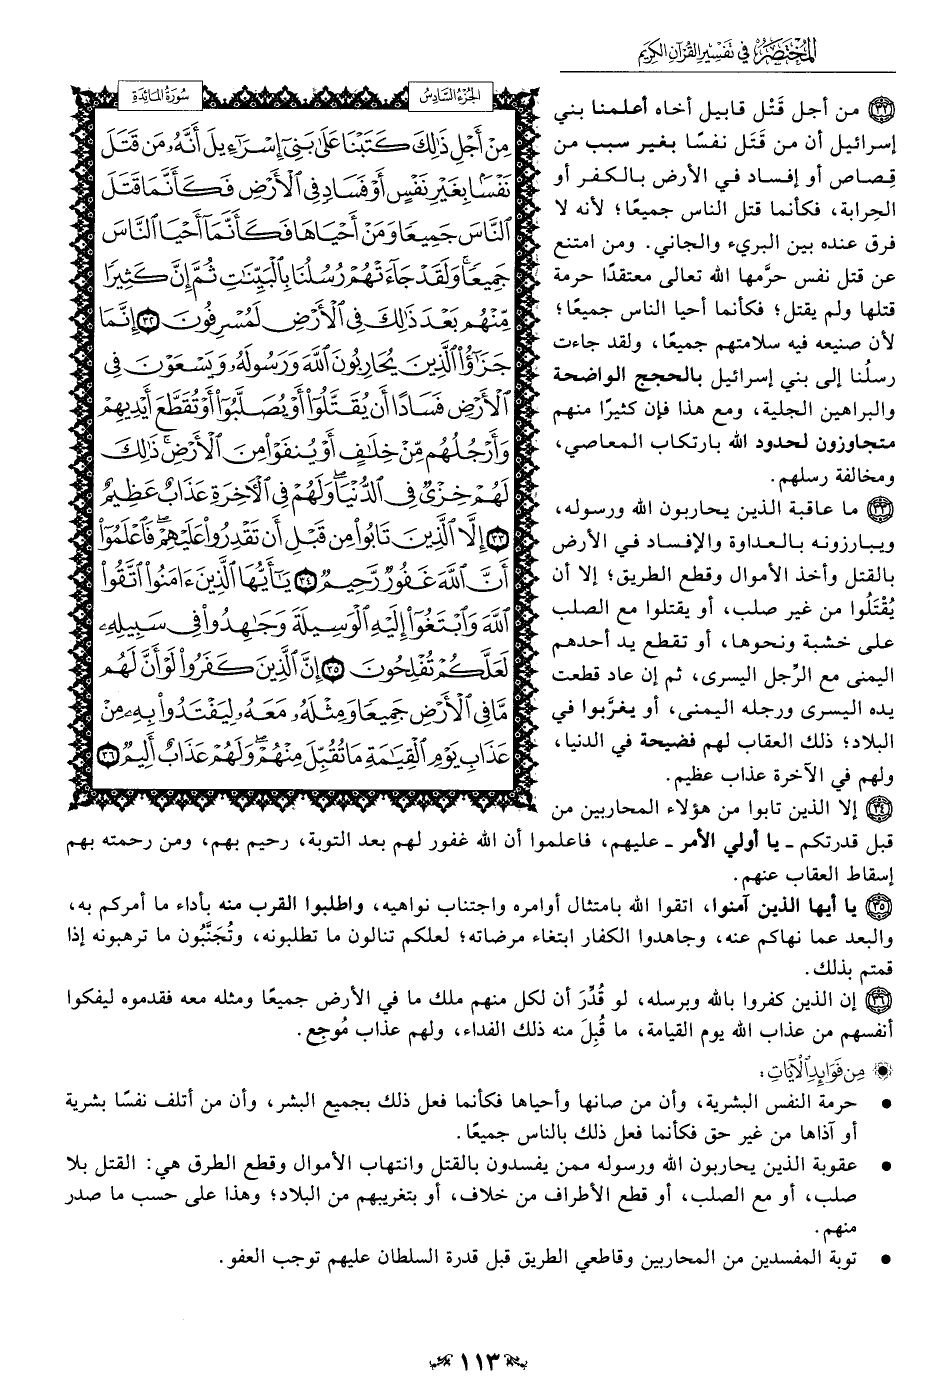 المختصر في تفسير القرآن الكريم
الجزء السادس
سورة المائدة
مِنْ أَجْلِ ذَٰلِكَ كَتَبْنَا عَلَىٰ بَنِىٓ إِسْرَٰٓءِيلَ أَنَّهُۥ مَن قَتَلَ
نَفْسًۢا بِغَيْرِ نَفْسٍ أَوْ فَسَادٍ فِى ٱلْأَرْضِ فَكَأَنَّمَا قَتَلَ
ٱلنَّاسَ جَمِيعًا وَمَنْ أَحْيَاهَا فَكَأَنَّمَآ أَحْيَا ٱلنَّاسَ
جَمِيعًا ۚ وَلَقَدْ جَآءَتْهُمْ رُسُلُنَا بِٱلْبَيِّنَٰتِ ثُمَّ إِنَّ كَثِيرًا
مِّنْهُم بَعْدَ ذَٰلِكَ فِى ٱلْأَرْضِ لَمُسْرِفُونَ ٣٢ إِنَّمَا
جَزَٰٓؤُا۟ ٱلَّذِينَ يُحَارِبُونَ ٱللَّهَ وَرَسُولَهُۥ وَيَسْعَوْنَ فِى
ٱلْأَرْضِ فَسَادًا أَن يُقَتَّلُوٓا۟ أَوْ يُصَلَّبُوٓا۟ أَوْ تُقَطَّعَ أَيْدِيهِمْ
وَأَرْجُلُهُم مِّنْ خِلَٰفٍ أَوْ يُنفَوْا۟ مِنَ ٱلْأَرْضِ ۚ ذَٰلِكَ
لَهُمْ خِزْىٌ فِى ٱلدُّنْيَا ۖ وَلَهُمْ فِى ٱلْءَاخِرَةِ عَذَابٌ عَظِيمٌ
٣٣ إِلَّا ٱلَّذِينَ تَابُوا۟ مِن قَبْلِ أَن تَقْدِرُوا۟ عَلَيْهِمْ ۖ فَٱعْلَمُوٓا۟
أَنَّ ٱللَّهَ غَفُورٌ رَّحِيمٌ ٣٤ يَٰٓأَيُّهَا ٱلَّذِينَ ءَامَنُوا۟ ٱتَّقُوا۟
ٱللَّهَ وَٱبْتَغُوٓا۟ إِلَيْهِ ٱلْوَسِيلَةَ وَجَٰهِدُوا۟ فِى سَبِيلِهِۦ
لَعَلَّكُمْ تُفْلِحُونَ ٣٥ إِنَّ ٱلَّذِينَ كَفَرُوا۟ لَوْ أَنَّ لَهُم
مَّا فِى ٱلْأَرْضِ جَمِيعًا وَمِثْلَهُۥ مَعَهُۥ لِيَفْتَدُوا۟ بِهِۦ مِنْ
عَذَابِ يَوْمِ ٱلْقِيَٰمَةِ مَا تُقُبِّلَ مِنْهُمْ ۖ وَلَهُمْ عَذَابٌ أَلِيمٌ ٣٦
٣٢ من أجل قَتْل قابيل أخاه أعلمنا بني
إسرائيل أن من قَتَل نفسًا بغير سبب من
قِصاص أو إفساد في الأرض بالكفر أو
الحِرابة، فكأنما قتل الناس جميعًا؛ لأنه لا
فرق عنده بين البريء والجاني. ومن امتنع
عن قتل نفس حرَّمها الله تعالى معتقدًا حرمة
قتلها ولم يقتل؛ فكأنما أحيا الناس جميعًا؛
لأن صنيعه فيه سلامتهم جميعًا، ولقد جاءت
رسلُنا إلى بني إسرائيل بالحجج الواضحة
والبراهين الجلية، ومع هذا فإن كثيرًا منهم
متجاوزون لحدود الله بارتكاب المعاصي،
ومخالفة رسلهم.
٣٣ ما عاقبة الذين يحاربون الله ورسوله،
ويبارزونه بالعداوة والإفساد في الأرض
بالقتل وأخذ الأموال وقطع الطريق؛ إلا أن
يُقْتَلُوا من غير صلب، أو يقتلوا مع الصلب
على خشبة ونحوها، أو تقطع يد أحدهم
اليمنى مع الرِّجل اليسرى، ثم إن عاد قطعت
يده اليسرى ورجله اليمنى، أو يغرَّبوا في
البلاد؛ ذلك العقاب لهم فضيحة في الدنيا،
ولهم في الآخرة عذاب عظيم.
٣٤ إلا الذين تابوا من هؤلاء المحاربين من
قبل قدرتكم ـ يا أولي الأمر ـ عليهم، فاعلموا أن الله غفور لهم بعد التوبة، رحيم بهم، ومن رحمته بهم
إسقاط العقاب عنهم.
٣٥ يا أيها الذين آمنوا، اتقوا الله بامتثال أوامره واجتناب نواهيه، واطلبوا القرب منه بأداء ما أمركم به،
والبعد عما نهاكم عنه، وجاهدوا الكفار ابتغاء مرضاته؛ لعلكم تنالون ما تطلبونه، وتُجَنَّبُون ما ترهبونه إذا
قمتم بذلك.
٣٦ إن الذين كفروا بالله وبرسله، لو قُدِّرَ أن لكل منهم ملك ما في الأرض جميعًا ومثله معه فقدموه ليفكوا
أنفسهم من عذاب الله يوم القيامة، ما قُبِلَ منه ذلك الفداء، ولهم عذاب مُوجِع.
من فوائد الآيات:
• حرمة النفس البشرية، وأن من صانها وأحياها فكأنما فعل ذلك بجميع البشر، وأن من أتلف نفسًا بشرية
أو آذاها من غير حق فكأنما فعل ذلك بالناس جميعًا.
• عقوبة الذين يحاربون الله ورسوله ممن يفسدون بالقتل وانتهاب الأموال وقطع الطرق هي: القتل بلا
صلب، أو مع الصلب، أو قطع الأطراف من خلاف، أو بتغريبهم من البلاد؛ وهذا على حسب ما صدر
منهم.
• توبة المفسدين من المحاربين وقاطعي الطريق قبل قدرة السلطان عليهم توجب العفو.
١١٣